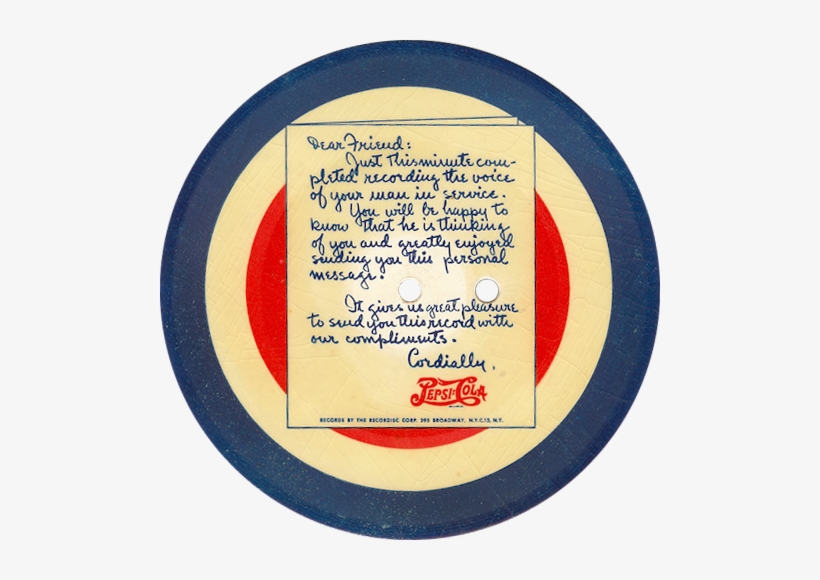 Dear Friend:
Just this minute com-
pleted recording the voice
of your man in service.
You will be happy to
know that he is thinking
of you and greatly enjoyed
sending you this personal
message.
It gives us great pleasure
to send you this record with
our compliments.
Cordially,
PEPSI-COLA
RECORDS BY THE RECORDISC CORP. 395 BROADWAY, N.Y.C.13, N.Y.